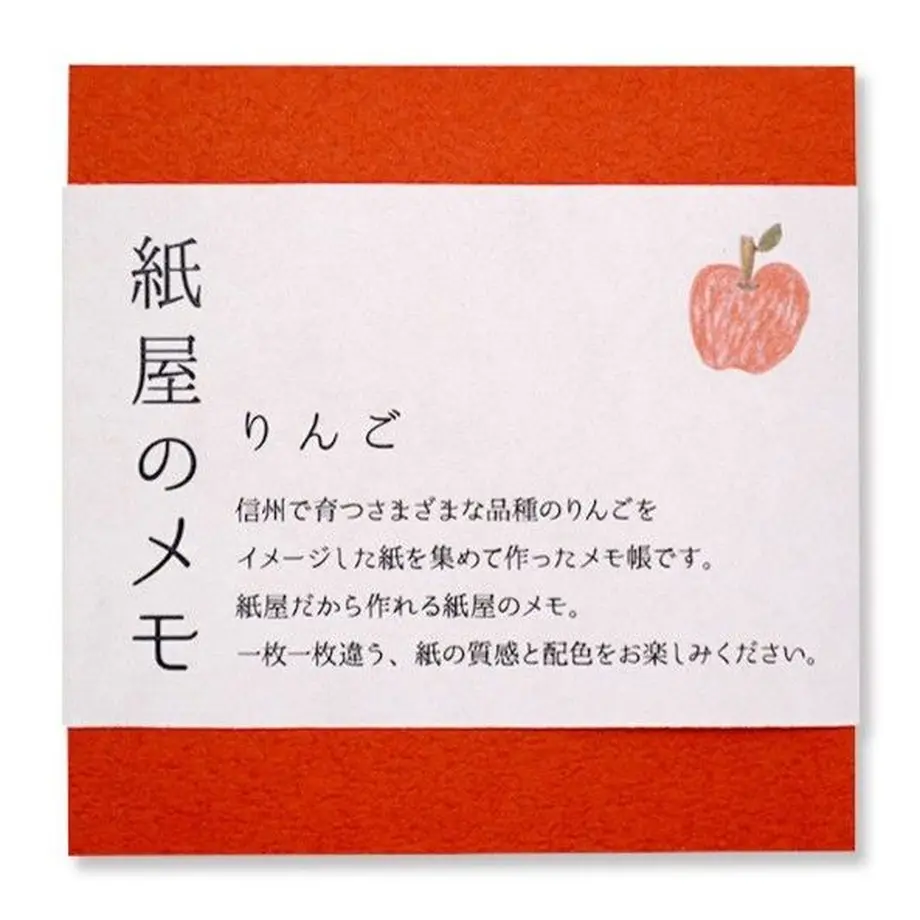 紙屋のメモ
りんご
信州で育つさまざまな品種のりんごを
イメージした紙を集めて作ったメモ帳です。
紙屋だから作れる紙屋のメモ。
一枚一枚違う、紙の質感と配色をお楽しみください。